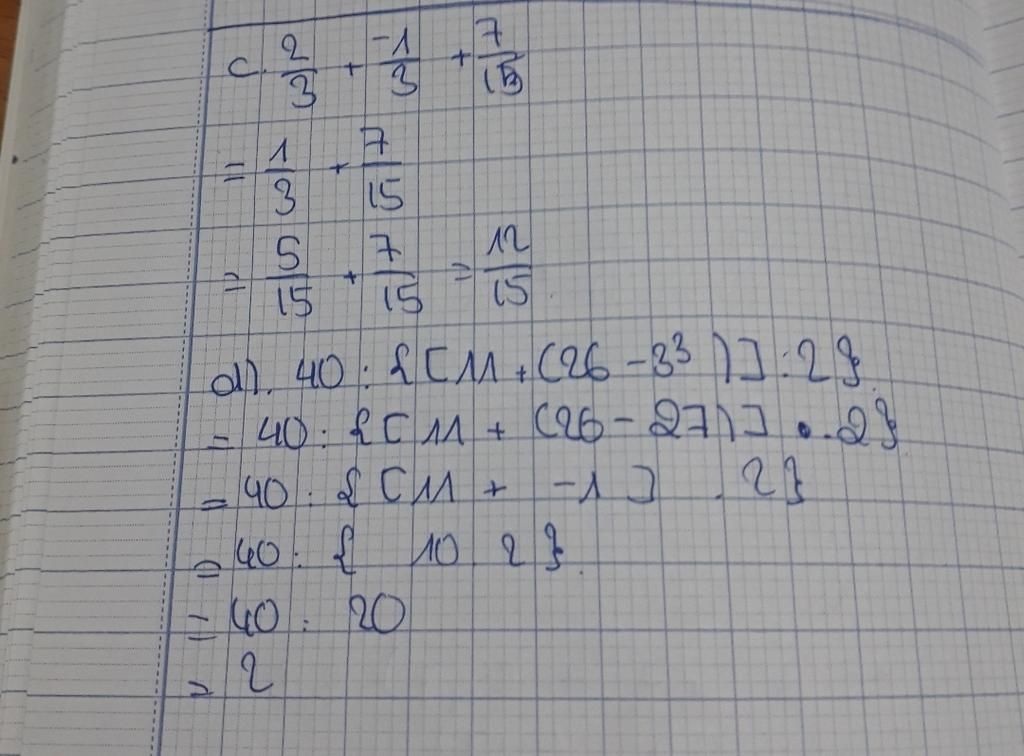 c. 2/3 + -1/3 + 7/15
= 1/3 + 7/15
= 5/15 + 7/15 = 12/15
d). 40 : {[11 + (26 - 3³)] : 2}
= 40 : {[11 + (26 - 27)] . 2}
= 40 : {[11 + -1] . 2}
= 40 : { 10 . 2}
= 40 : 20
= 2